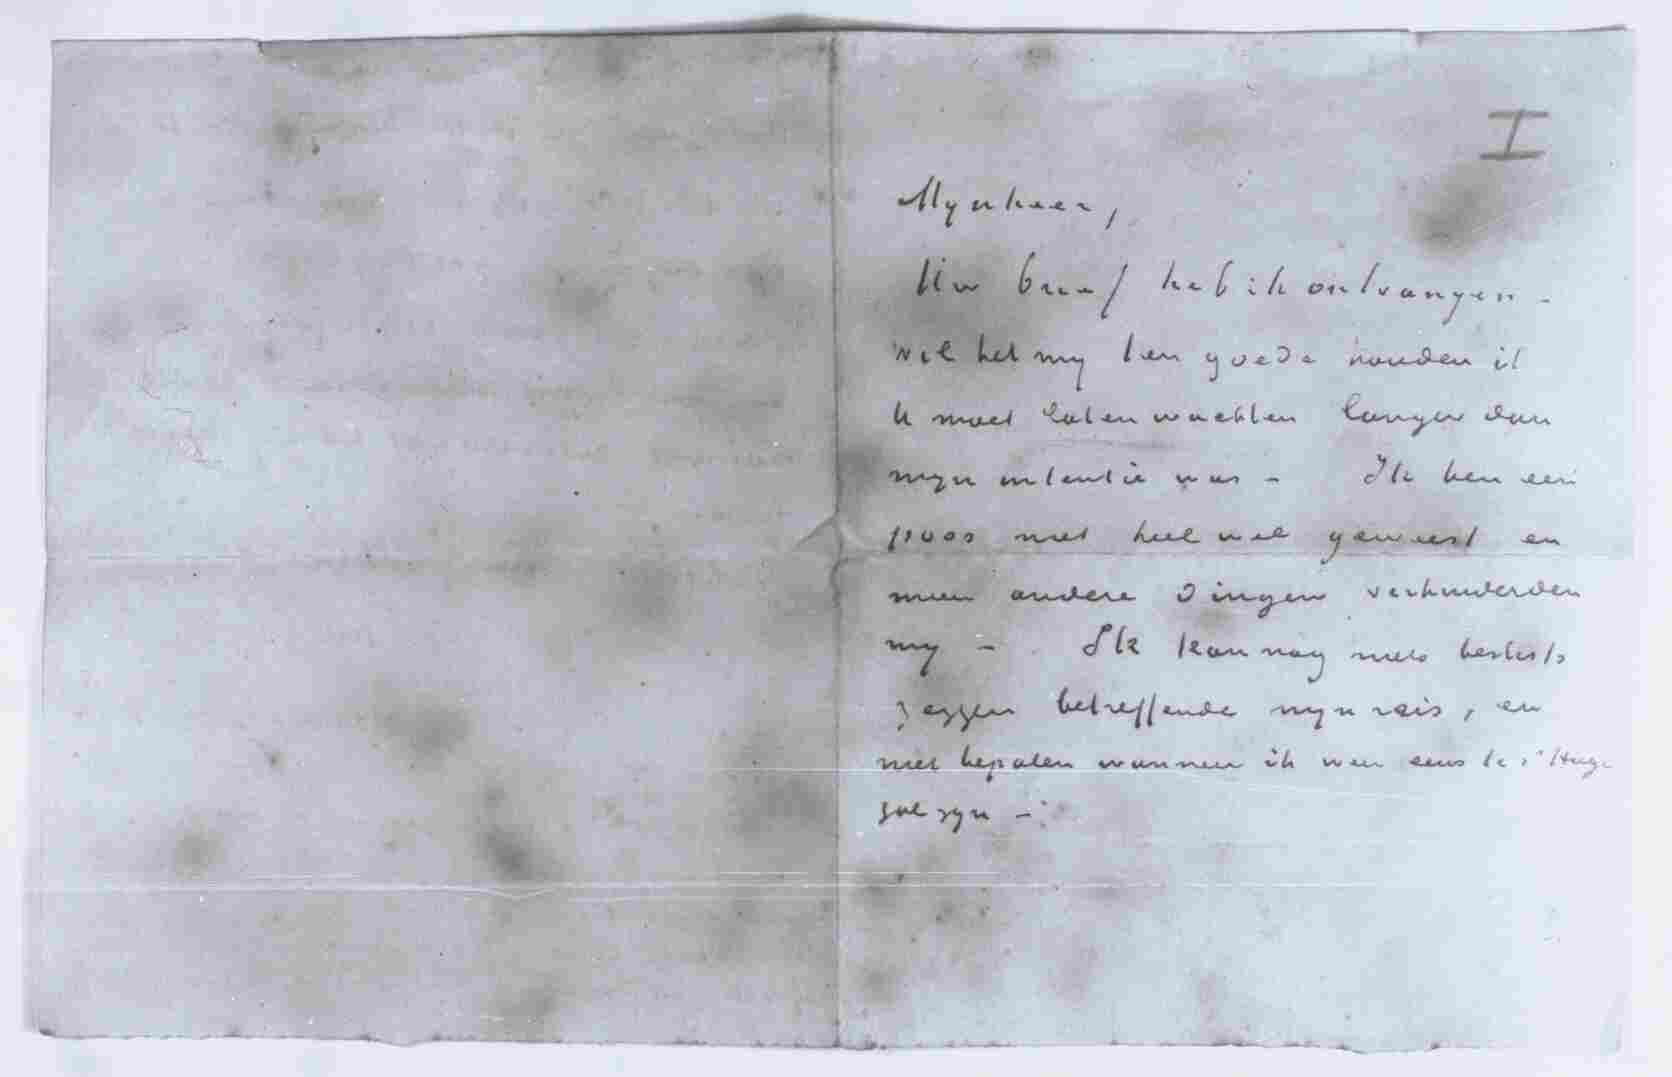 I
Mynheer,
Uw brief heb ik ontvangen -
wil het my ten goede houden ik
U moet laten wachten langer dan
myn intentie was - Ik ben een
poos niet heel wel geweest en
meer andere dingen verhinderden
my - Ik kan nog niets beslists
zeggen betreffende myn reis, en
niet bepalen wanneer ik weer eens te s'Hage
zal zyn -